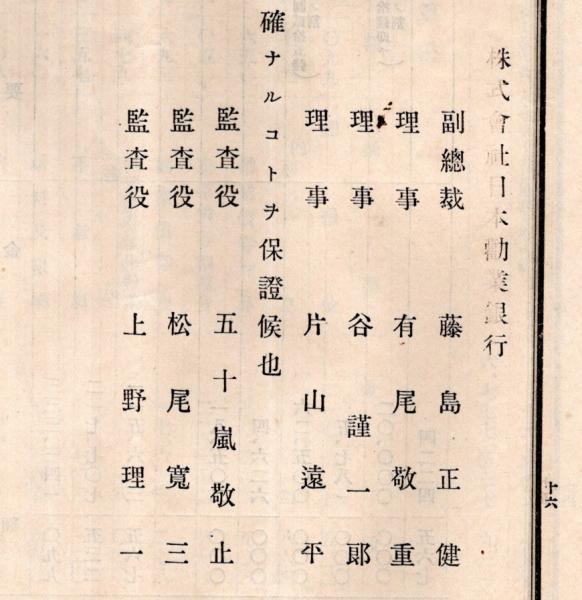 十六
株式會社日本勸業銀行
副總裁 藤島正健
理事 有尾敬重
理事 谷謹一郎
理事 片山遠平
確ナルコトヲ保證候也
監査役 五十嵐敬止
監査役 松尾寬三
監査役 上野理一